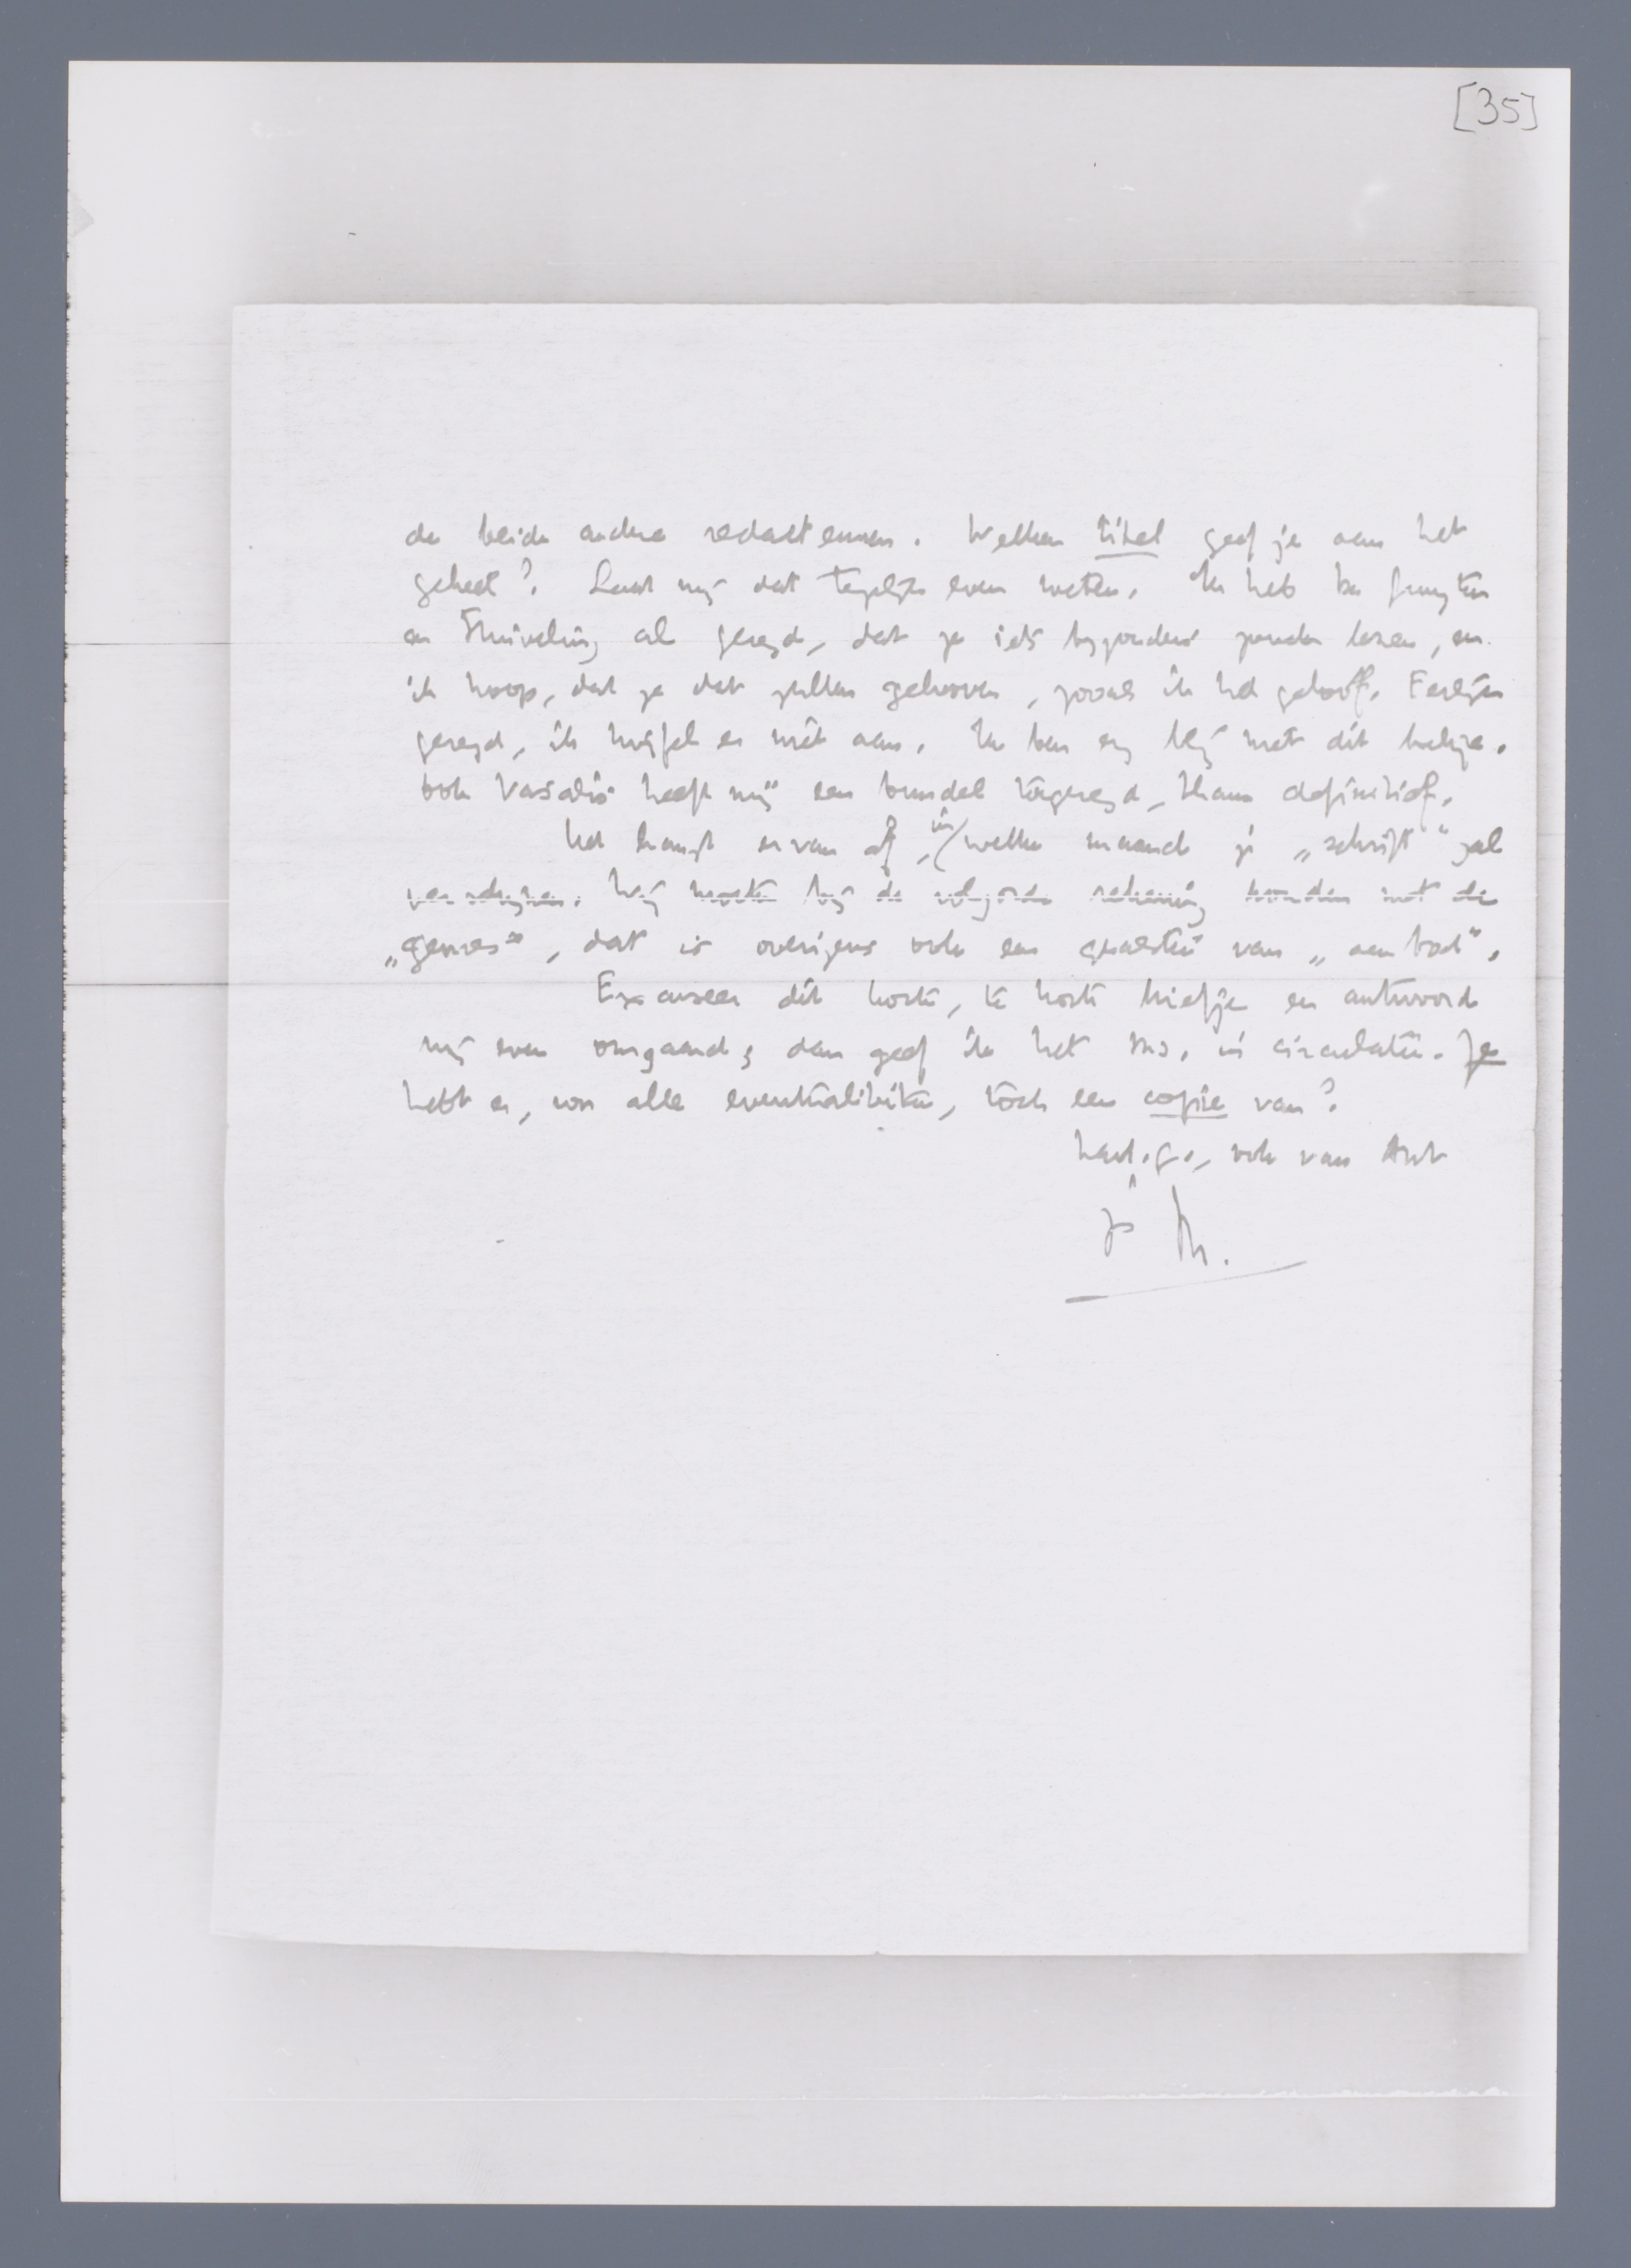 [35]
de beide andere redacteuren. Welken titel geef je aan het
geheel? Laat mij dat tegelijk even weten. Ik heb
en Stuiveling al gezegd, dat ze iets byzonders zouden lezen, en
ik hoop, dat ze dat zullen gelooven, zooals ik het geloof. Eerlijk
gezegd, ik twijfel er niet aan. Ik ben erg blij met dit boekje.
Ook Vasalis heeft mij een bundel toegezegd, thans definitief.
Het hangt ervan af, in welke maand je „schrift" zal
verschijnen. Wij moeten bij de volgorde rekening houden met de
„genres", dat is overigens ook een quaestie van „aanbod".
Excuseer dit korte, te korte briefje en antwoord
mij even omgaand; dan geef ik het ms. in circulatie. Je
hebt er, voor alle eventualiteiten, toch een copie van?
Hart. gr., ook van Ant